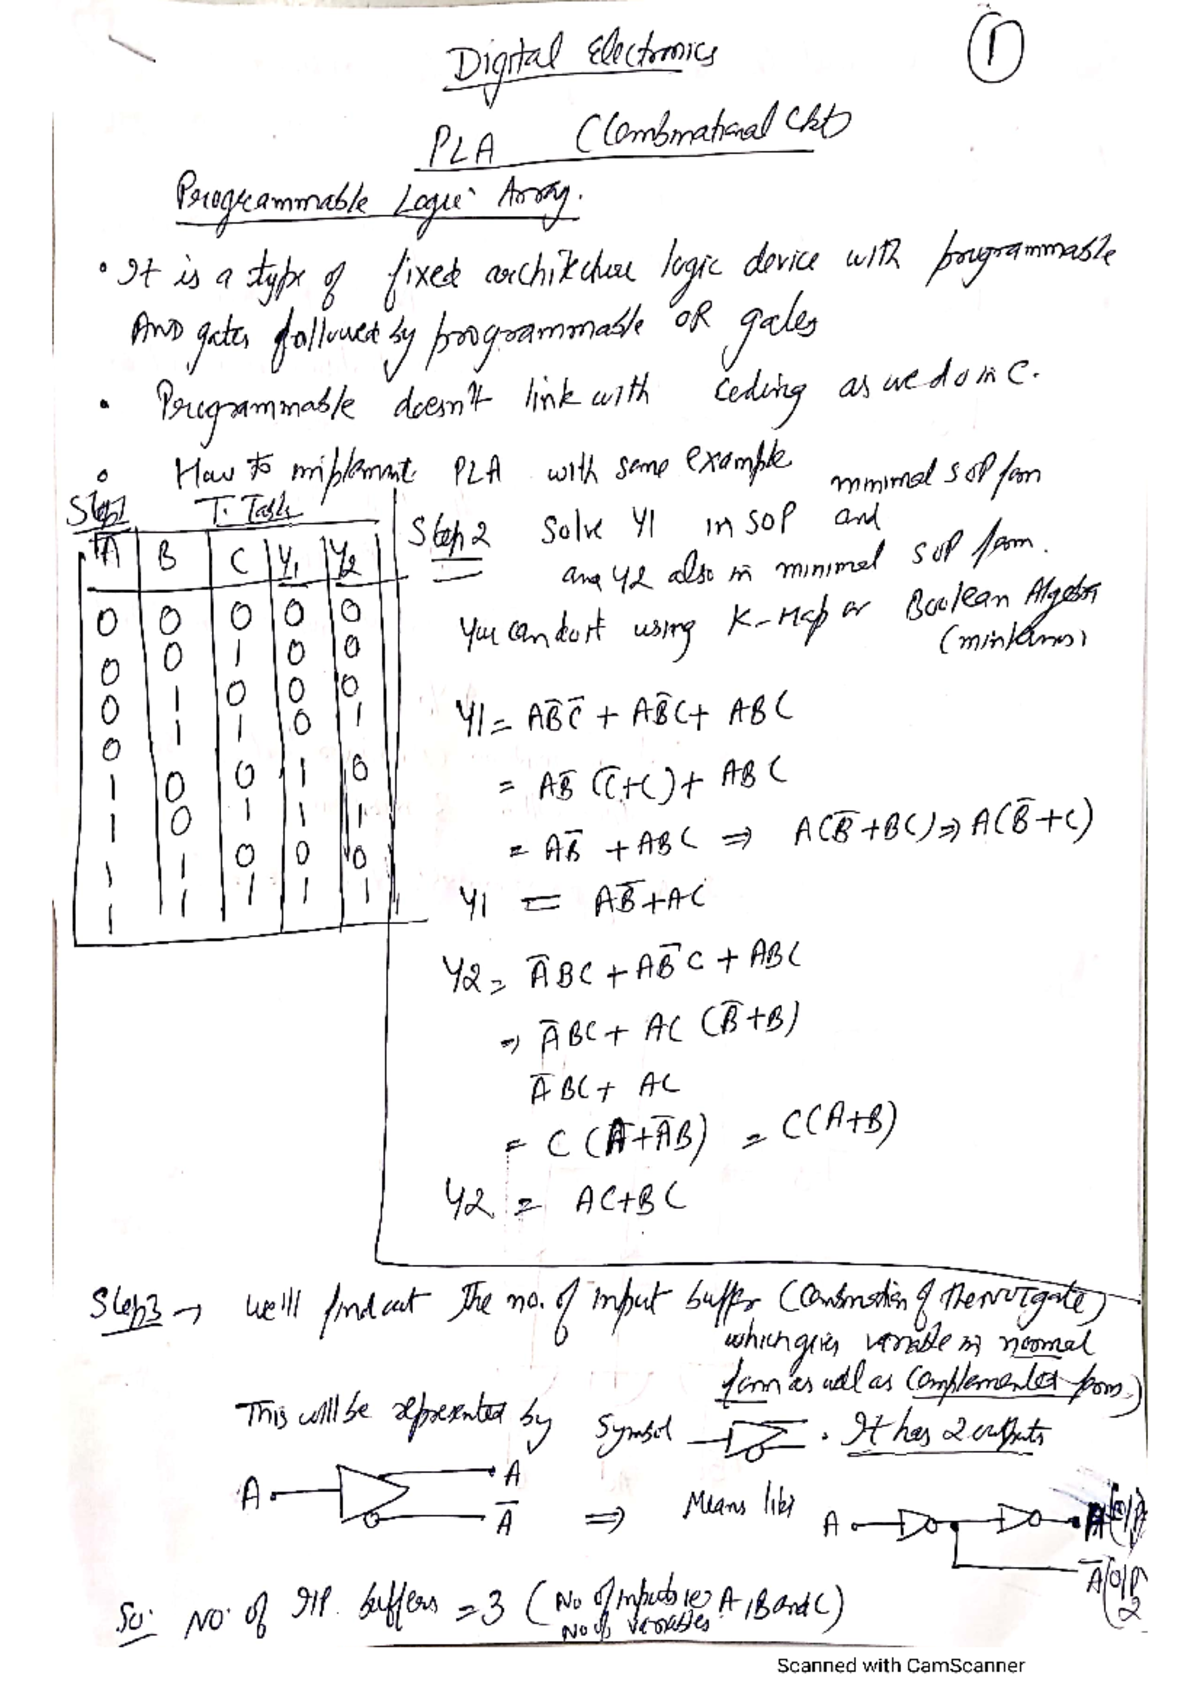 1
Digital Electronics
PLA (Combinational Ckt)
Programmable Logic Array.
• It is a type of fixed architecture logic device with programmable
AND gates followed by programmable OR gates
• Programmable doesn't link with coding as we do in C.
• How to implement PLA with some example
Step1 T. Table
A B C Y1 Y2
0 0 0 0 0
0 0 1 0 0
0 1 0 0 0
0 1 1 0 1
1 0 0 1 0
1 0 1 1 1
1 1 0 0 0
1 1 1 1 1
Step 2 Solve Y1 in SOP and minimal SOP form
and Y2 also in minimal SOP form.
You can do it using K-Map or Boolean Algebra
(minterms)
Y1 = AB̅C̅ + AB̅C + ABC
= AB̅ (C̅+C) + ABC
= AB̅ + ABC ⇒ A(B̅+BC) ⇒ A(B̅+C)
Y1 = AB̅+AC
Y2 = A̅BC + AB̅C + ABC
⇒ A̅BC + AC (B̅+B)
A̅BC + AC
= C (A+A̅B) = C(A+B)
Y2 = AC+BC
Step3 → we'll find out the no. of input buffer (Combination of the NOT gate)
which gives variable in normal
form as well as complemented form.)
This will be represented by Symbol . It has 2 outputs
A A A̅ ⇒ Means like A A O/P A̅ O/P 2
So: No. of I/P. buffers = 3 (No of inputs ie A, B and C)
No of variables
Scanned with CamScanner